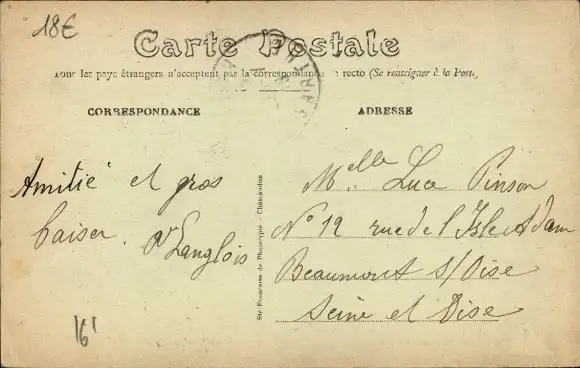 18€
Carte Postale
Tous les pays étrangers n'acceptent pas la correspondance au recto (Se renseigner à la Poste)
CORRESPONDANCE
ADRESSE
Amitié et gros
baiser. Langlois
Melle. Luce Pinson
No 12 rue de l'Isle Adam
Beaumont s/Oise
Seine et Oise
Sté Française de Phototypie - Châteaudun
16'